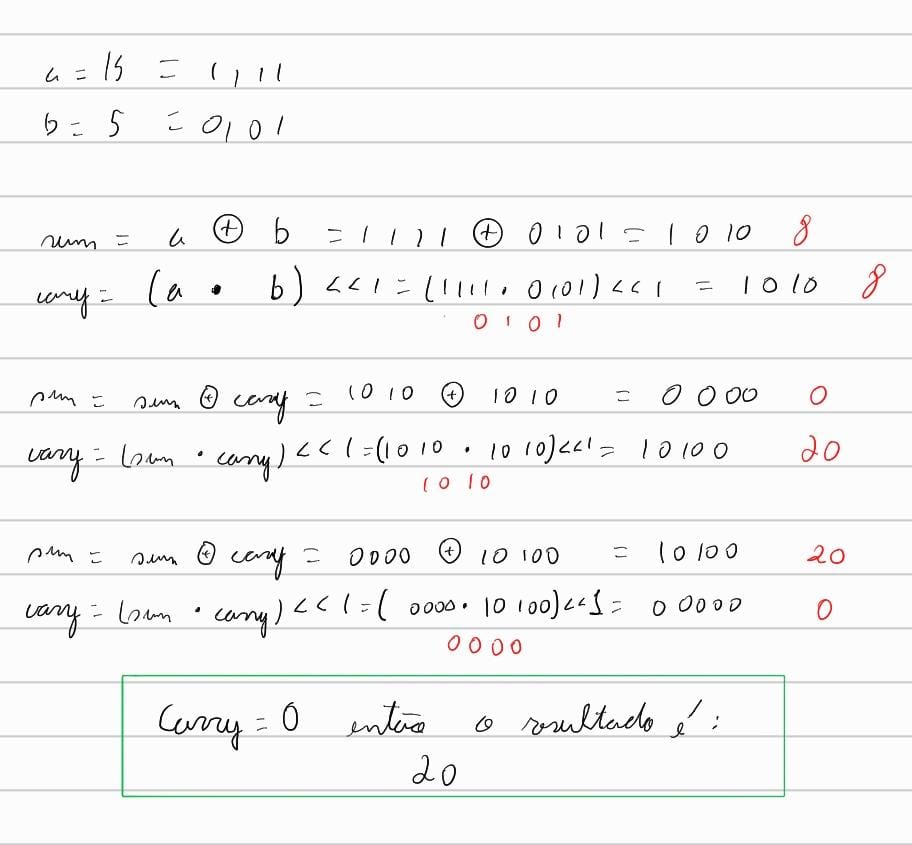 a = 15 = 1111
b = 5 = 0101
sum = a ⊕ b = 1111 ⊕ 0101 = 1010 8
carry = (a • b) << 1 = (1111 • 0101) << 1 = 1010 8
0101
sum = sum ⊕ carry = 1010 ⊕ 1010 = 0000 0
carry = (sum • carry) << 1 = (1010 • 1010) << 1 = 10100 20
1010
sum = sum ⊕ carry = 0000 ⊕ 10100 = 10100 20
carry = (sum • carry) << 1 = (0000 • 10100) << 1 = 00000 0
0000
Carry = 0 então o resultado é:
20